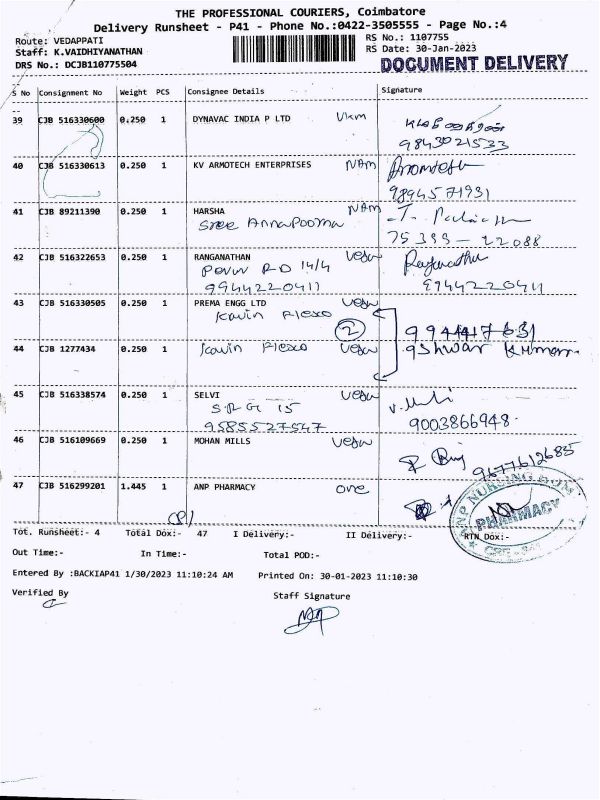 THE PROFESSIONAL COURIERS, Coimbatore
Delivery Runsheet - P41 - Phone No.:0422-3505555 - Page No.:4
Route: VEDAPPATI
RS No.: 1107755
Staff: K.VAIDHIYANATHAN
RS Date: 30-Jan-2023
DRS No.: DCJB110775504
DOCUMENT DELIVERY
S No Consignment No Weight PCS Consignee Details Signature
39 CJB 516330600 0.250 1 DYNAVAC INDIA P LTD Vkm
9843021533
40 CJB 516330613 0.250 1 KV ARMOTECH ENTERPRISES NAM
9894571931
41 CJB 89211390 0.250 1 HARSHA NAM
Sree Annapoorna
75399-22088
42 CJB 516322653 0.250 1 RANGANATHAN
RD 14/4
9944220411 9944220411
43 CJB 516330505 0.250 1 PREMA ENGG LTD
Kavin Flexo
2
44 CJB 1277434 0.250 1 Kavin Flexo
45 CJB 516338574 0.250 1 SELVI
SRG 15
9585527547 9003866948
46 CJB 516109669 0.250 1 MOHAN MILLS
9677612685
47 CJB 516299201 1.445 1 ANP PHARMACY one
ANP NURSING HOME
PHARMACY
Tot. Runsheet:- 4 Total Dox:- 47 I Delivery:- II Delivery:- RTN Dox:-
Out Time:- In Time:- Total POD:-
Entered By :BACKIAP41 1/30/2023 11:10:24 AM Printed On: 30-01-2023 11:10:30
Verified By Staff Signature